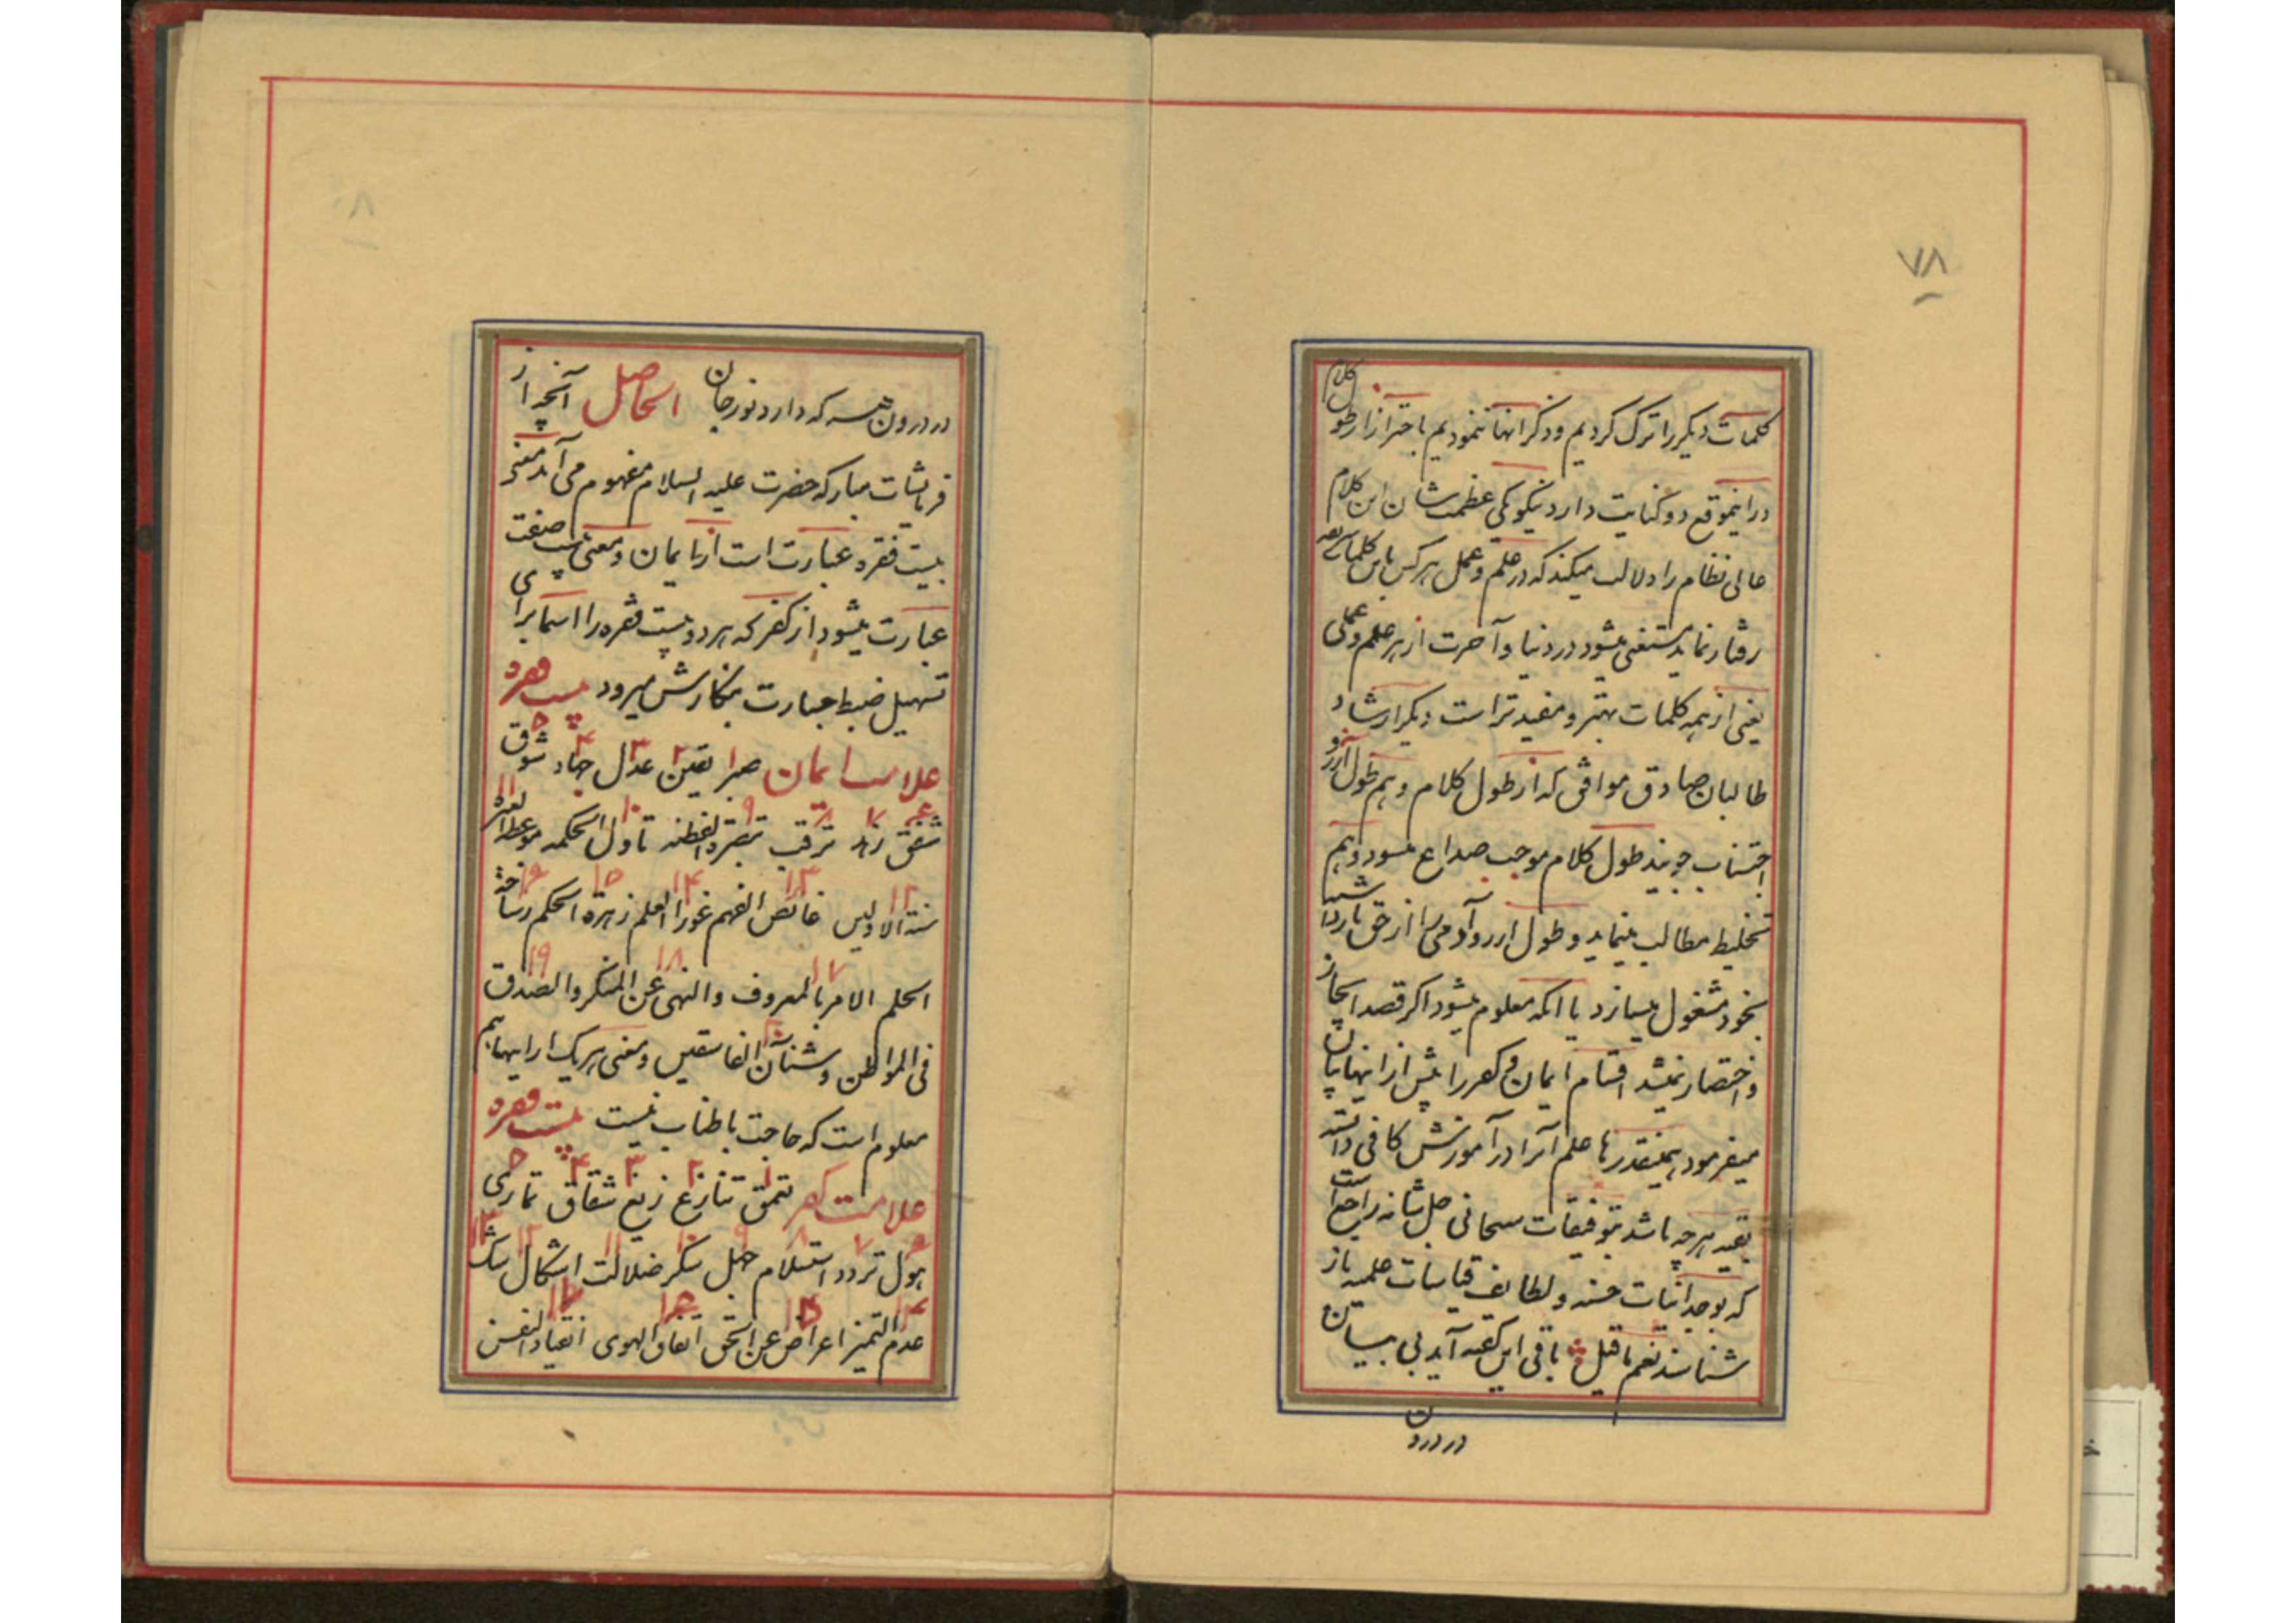 ۷۸
کلمات دیگر را ترک کردیم و ذکر انها ننمودیم باحتراز از طول کلام
در اینموقع دو کنایت دارد نیکو یکی عظمت شان این کلام
عالی نظام را دلالت میکند که در علم و عمل هر کس باین کلمات
رفتار نماید مستغنی میشود در دنیا و آخرت از هر علم و عملی
یعنی از همه کلمات بهتر و مفیدتر است دیگر ارشاد
طالبان صادق موافق که از طول کلام و هم طول آرزو
اجتناب جویند طول کلام موجب صداع میشود و هم
تخلیط مطالب مینماید و طول ارزو آدمی را از حق باز داشته
بخود مشغول میسازد با انکه معلوم میشود اگر قصد ایجاز
و اختصار نمیشد اقسام ایمان و کفر را بیش از اینها بیان
میفرمود همینقدرها علم آنرا در آموزش کافی دانسته
بقیه هر چه باشد بتوفیقات سبحانی جل شانه راجع است
که بوجدانیات حسنه و لطایف قیاسات علمیه باز
شناسند نعم ما قیل باقی این گفته آید بی بیان
در درون
در درون هر که دارد نور جان الحاصل آنچه از
فرمایشات مبارکه حضرت علیه السلام مفهوم می آید معنی
بیست فقره عبارت است از ایمان و معنی بیست صفت
عبارت میشود از کفر که هر دو بیست فقره را اسما برای
تسهیل ضبط عبارت بنگارش میرود بیست فقره
علامت ایمان صبر ۱ یقین ۲ عدل ۳ جهاد ۴ شوق ۵
شفق ۶ زهد ۷ ترقب ۸ تبصرة الفطنه ۹ تاول الحکمه ۱۰ موعظة العبره ۱۱
سنة الاولین ۱۲ غائص الفهم ۱۳ غور العلم ۱۴ زهرة الحکم ۱۵ رساخة ۱۶
الحلم الامر بالمعروف ۱۷ والنهی عن المنکر ۱۸ والصدق ۱۹
فی المواطن و شنآن الفاسقین ۲۰ و معنی هر یک از اینها هم
معلوم است که حاجت باطناب نیست بیست فقره
علامت کفر تعمق ۱ تنازع ۲ زیغ ۳ شقاق ۴ تماری ۵
هول ۶ تردد ۷ استسلام ۸ جهل ۹ سکر ۱۰ ضلالت ۱۱ اشکال ۱۲ شک ۱۳
عدم التمیز ۱۴ اعراض عن الحق ۱۵ اتفاق الهوی ۱۶ انقیاد النفس ۱۷